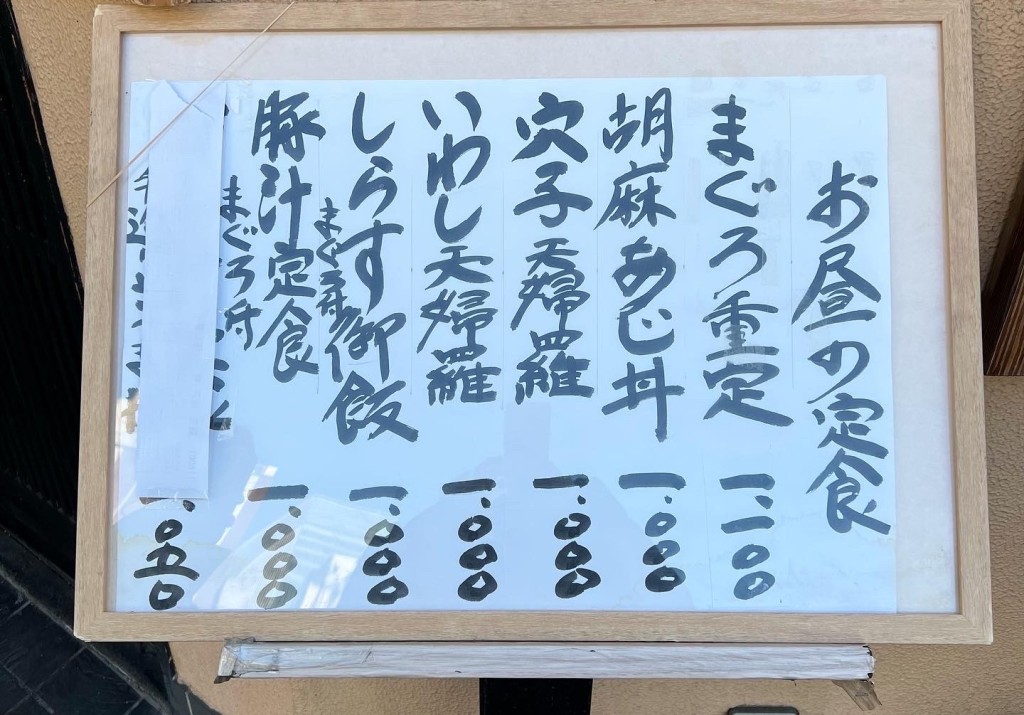 お昼の定食
まぐろ重定 一、一〇〇
胡麻あじ丼 一、〇〇〇
穴子天婦羅 一、〇〇〇
いわし天婦羅 一、〇〇〇
しらす御飯 一、〇〇〇
まぐろ丼
豚汁定食 一、〇〇〇
まぐろ丼
一、〇五〇